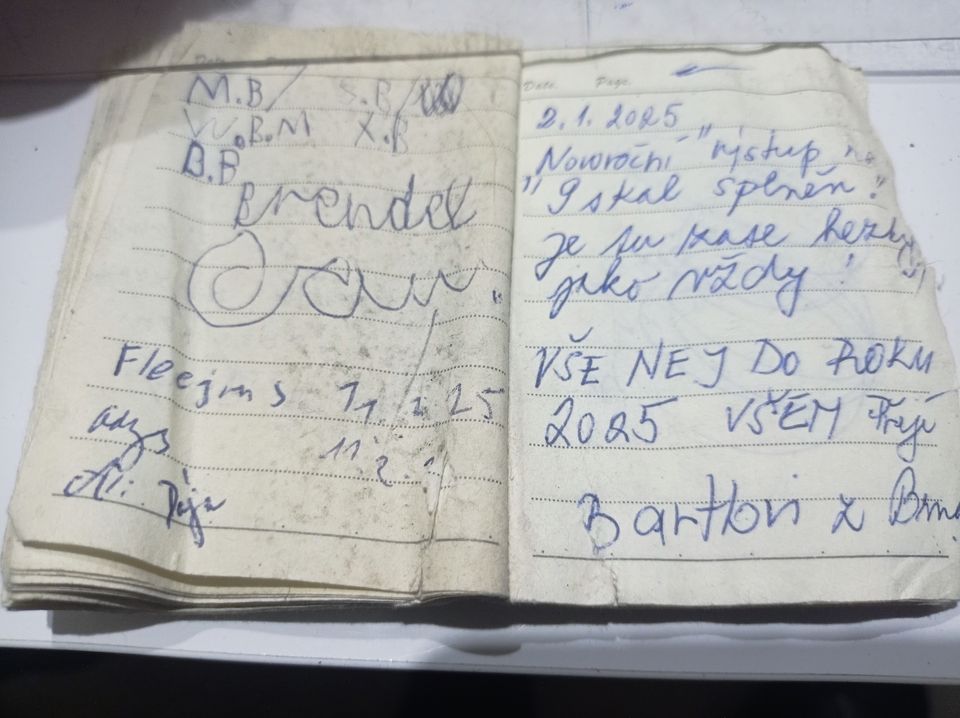 M.B/ S.B/
W.B.M X.B
B.B
Brendel
Fleejms 11. 2 25
11. 2.
Date. Page.
2.1.2025
Novoroční "výstup na
"9 skal splněn."
je tu zase hezky
jako vždy!
VŠE NEJ DO ROKU
2025 VŠEM Přejí
Bartlovi z Brna